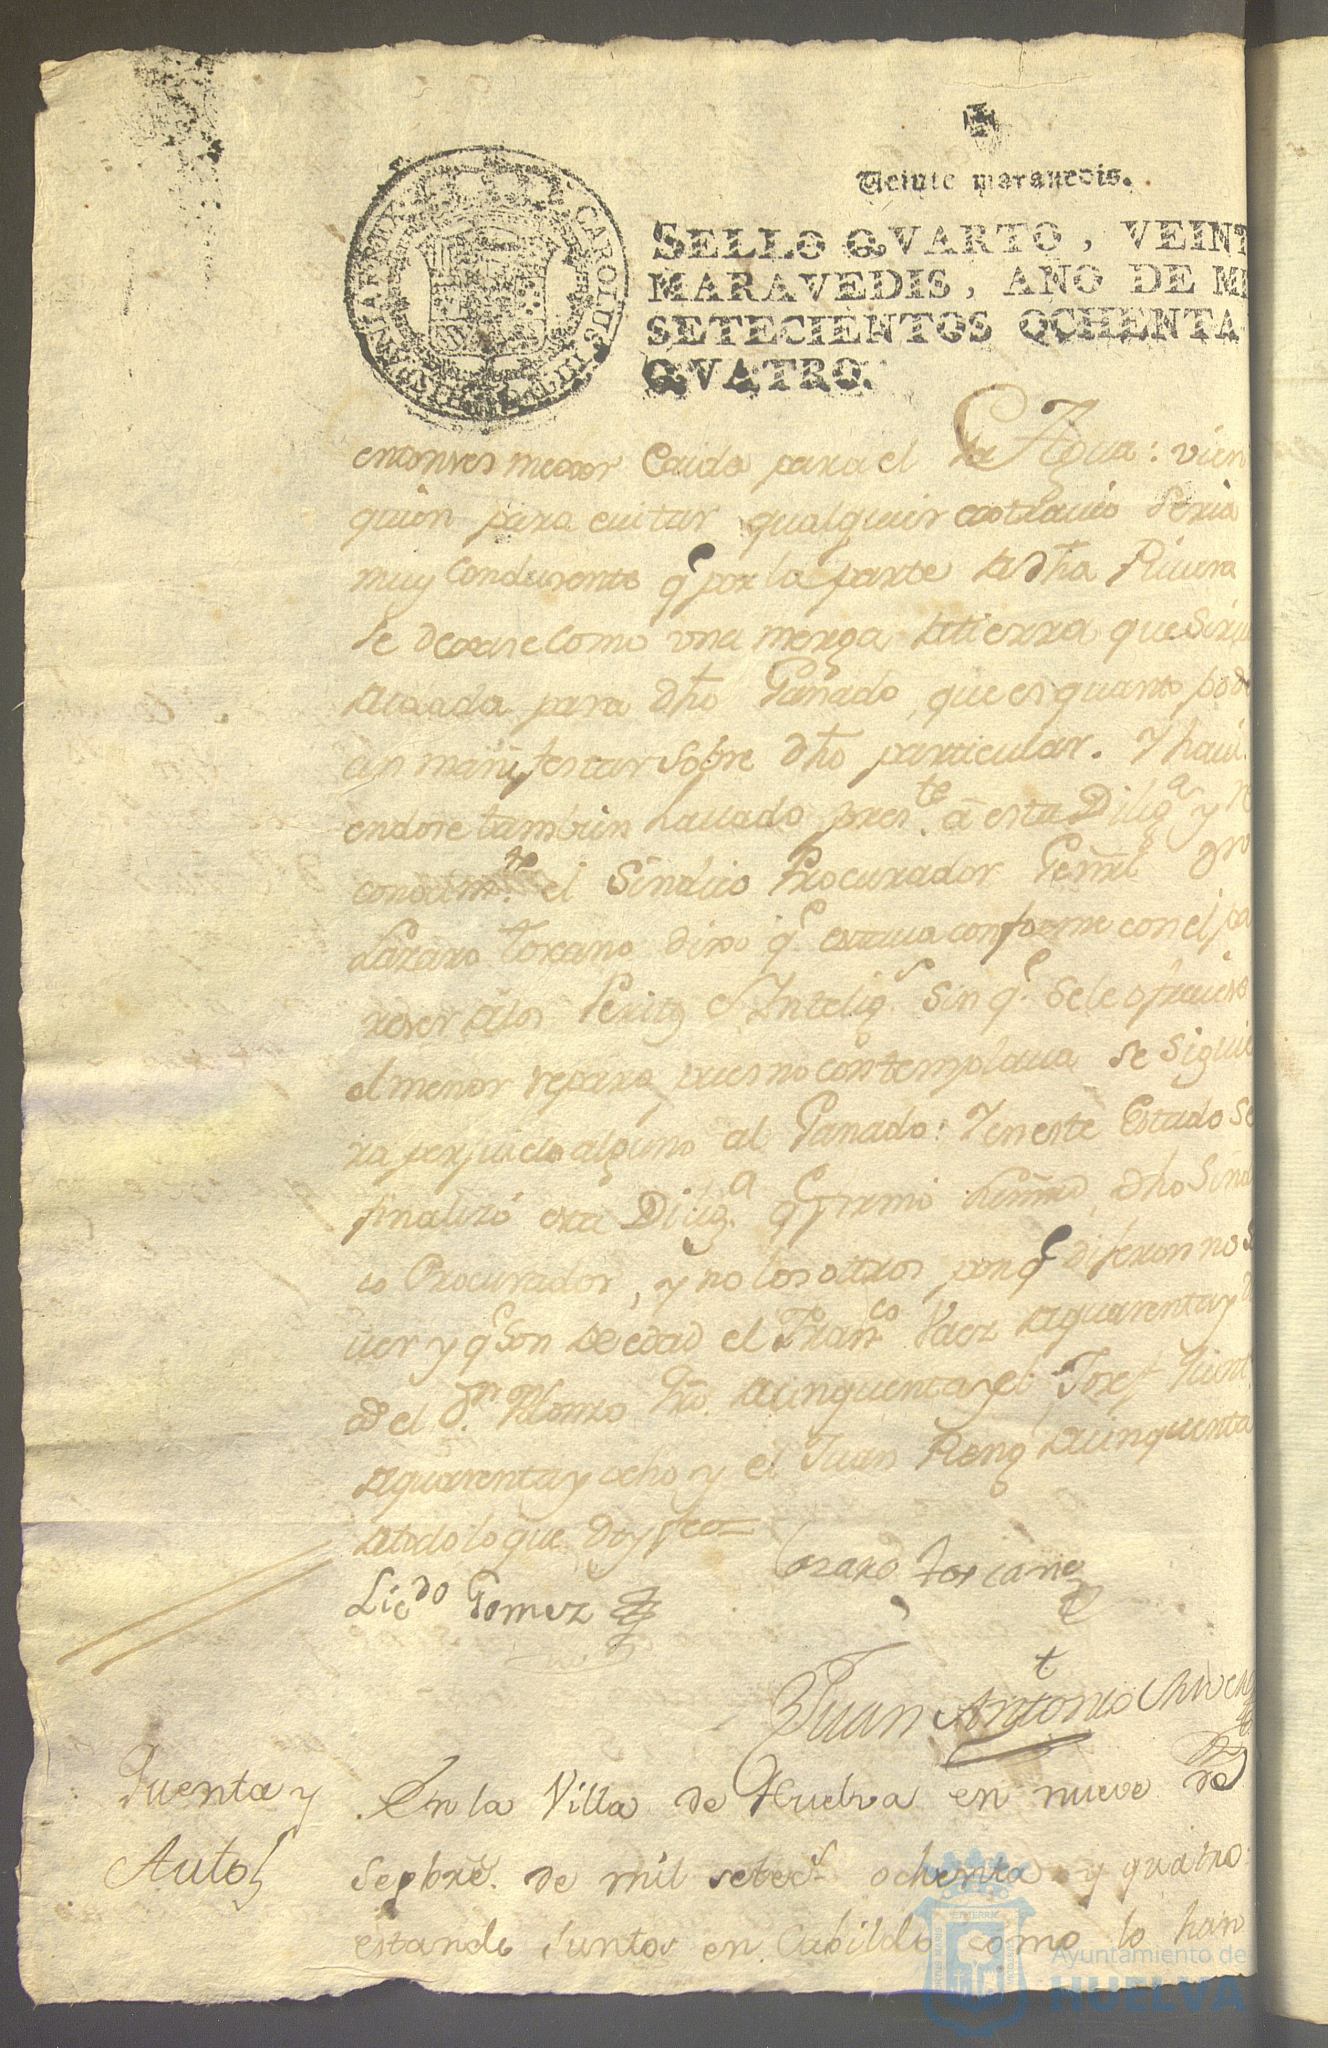 Veinte maravedis.
SELLO QVARTO, VEINT
MARAVEDIS, AÑO DE MI
SETECIENTOS OCHENTA
QVATRO.
CAROLUS III D G HISPANIAR REX
entonses mexor Caida para el la Agua: vien
quien para euitar qualquier Seria
muy Condusente q.e por la parte de dha Riuera
se dexase Como vna merga de tierra que Siru
para dho Ganado, que es quanto podi
an manifestar sobre dho particular. Y haui
endose tambien hallado pres.te a esta Dilig.a y re
conosim.to el Sindico Procurador Genrâl
Lazaro Toscano dixo q.e estaua conforme con el pa
reser de los Peritos é Intelig.s sin q.e se le ofresiese
el menor reparo, pues no contemplaua se siguie
ra perjuicio alguno al Ganado: Y en este Estado se
finalizó esta Dilig.a q.e firmó dho Sindi
co Procurador, y no los otros, porq.e dijeron no sa
uer y q.e son de edad el Fran.co Vaez de quarenta y
el D.n Alonso de sinquenta y el Josef
de quarenta y ocho y el Juan Reng.l de sinquenta
de todo lo que doy fee=
Lazaro toscano
Lic.do Gomez
Juan Antonio
Quenta y
Autos
En la Villa de Huelva en nueve de
Sepbrê. de mil setec.s ochenta y quatro:
estando Juntos en Cabildo como lo han
Ayuntamiento de
HUELVA